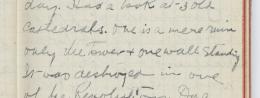 day. Had a look at 3 old
cathedrals. One is a mere ruin
only the tower & one wall standing
It was destroyed in one
of he Revolutions Dea